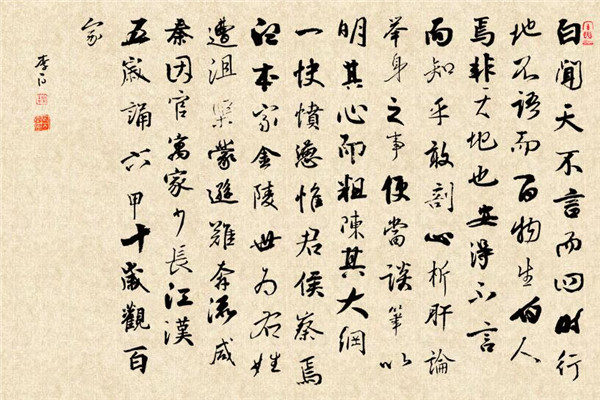 白聞天不言而四時行
地不語而百物生白人
焉非天地也安得不言
而知乎敢剖心析肝論
举身之事便當談筆以
明其心而粗陳其大綱
一快憤懣惟君侯察焉
白本家金陵世为右姓
遭沮渠蒙遜難奔流咸
秦因官寓家少長江漢
五歲誦六甲十歲觀百
家
李白